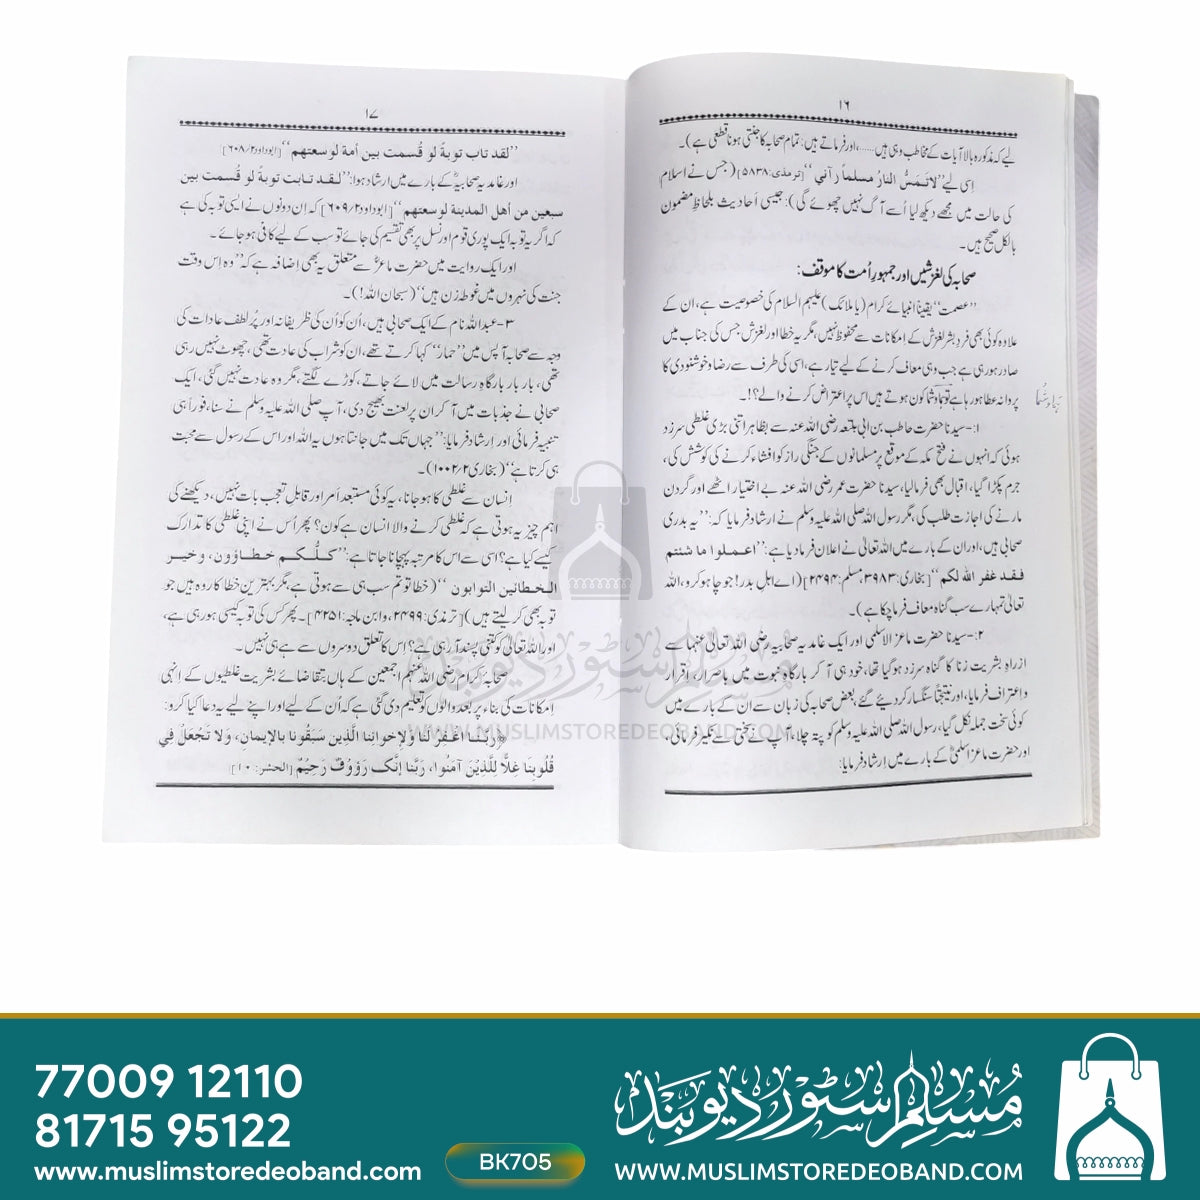 ۱۶
لیے کہ مذکورہ بالا آیات کے مخاطب وہی ہیں......، اور فرماتے ہیں: تمام صحابہ کا جنتی ہونا قطعی ہے)۔
اِسی لیے ”لاتَمَسُّ النارُ مسلماً رآني“ [ترمذی: ۵۸۳۸] (جس نے اسلام
کی حالت میں مجھے دیکھ لیا اُسے آگ نہیں چھوئے گی): جیسی اَحادیث بلحاظِ مضمون
بالکل صحیح ہیں۔
صحابہ کی لغزشیں اور جمہورِ اُمت کا موقف:
”عصمت“ یقیناً انبیائے کرام (با ملائک) علیہم السلام کی خصوصیت ہے، ان کے
علاوہ کوئی بھی فردِ بشر لغزش کے اِمکانات سے محفوظ نہیں، مگر یہ خطا اور لغزش جس کی جناب میں
صادر ہو رہی ہے جب وہی معاف کرنے کے لیے تیار ہے، اسی کی طرف سے رضا و خوشنودی کا
پروانہ عطا ہو رہا ہے تو ہما و شما کون ہوتے ہیں اس پر اعتراض کرنے والے؟!۔
۱:- سیدنا حضرت حاطب بن ابی بلتعہ رضی اللہ عنہ سے بظاہر اتنی بڑی غلطی سرزد
ہوئی کہ انہوں نے فتح مکہ کے موقع پر مسلمانوں کے جنگی راز کو افشاء کرنے کی کوشش کی،
جرم پکڑا گیا، اقبال بھی فرمالیا، سیدنا حضرت عمر رضی اللہ عنہ بے اختیار اٹھے اور گردن
مارنے کی اجازت طلب کی، مگر رسول اللہ صلی اللہ علیہ وسلم نے ارشاد فرمایا کہ: ”یہ بدری
صحابی ہیں، اور ان کے بارے میں اللہ تعالیٰ نے اعلان فرمادیا ہے: ”اعملوا ما شئتم
فقد غفر الله لكم“ [بخاری: ۳۹۸۳، مسلم: ۲۴۹۴] (اے اہلِ بدر! جو چاہو کرو، اللہ
تعالیٰ تمہارے سب گناہ معاف فرماچکا ہے)۔
۲:- سیدنا حضرت ماعز الاسلمی اور ایک غامدیہ صحابیہ رضی اللہ تعالیٰ عنہما سے
ازراہِ بشریت زنا کا گناہ سرزد ہو گیا تھا، خود ہی آ کر بارگاہِ نبوت میں باصرار، اِقرار
و اعتراف فرمایا، اور نتیجتًا سنگسار کر دیئے گئے، بعض صحابہ کی زبان سے ان کے بارے میں
کوئی سخت جملہ نکل گیا، رسول اللہ صلی اللہ علیہ وسلم کو پتہ چلا، آپ نے سختی سے نکیر فرمائی،
اور حضرت ماعز اسلمیؓ کے بارے میں اِرشاد فرمایا:
۱۷
”لقد تاب توبةً لو قُسمت بين أمة لوَسعتهم“ [ابوداود ۶۰۸/۲]
اور غامدیہ صحابیہؓ کے بارے میں ارشاد ہوا: ”لقد تابت توبةً لو قُسمت بين
سبعين من أهل المدينة لوَسعتهم“ [ابوداود ۶۰۹/۲] کہ اِن دونوں نے ایسی توبہ کی ہے
کہ اگر یہ توبہ ایک پوری قوم اور نسل پر بھی تقسیم کی جائے تو سب کے لیے کافی ہو جائے۔
اور ایک روایت میں حضرت ماعزؓ سے متعلق یہ بھی اِضافہ ہے کہ ”وہ اِس وقت
جنت کی نہروں میں غوطہ زن ہیں“ (سبحان اللہ!)۔
۳- عبداللہ نام کے ایک صحابی ہیں، اُن کو اُن کی ظریفانہ اور پُر لطف عادات کی
وجہ سے صحابہ آپس میں ”حمار“ کہا کرتے تھے، ان کو شراب کی عادت تھی، چھوٹ نہیں رہی
تھی، بار بار بارگاہِ رسالت میں لائے جاتے، کوڑے لگتے، مگر وہ عادت نہیں گئی، ایک
صحابی نے جذبات میں آ کر ان پر لعنت بھیج دی، آپ صلی اللہ علیہ وسلم نے سنا، فوراً ہی
تنبیہ فرمائی اور اِرشاد فرمایا: ”جہاں تک میں جانتا ہوں یہ اللہ اور اس کے رسول سے محبت
ہی کرتا ہے“ (بخاری ۱۰۰۲/۲)۔
انسان سے غلطی کا ہو جانا، یہ کوئی مستبعد اَمر اور قابلِ تعجب بات نہیں، دیکھنے کی
اہم چیز یہ ہوتی ہے کہ غلطی کرنے والا انسان ہے کون؟ پھر اُس نے اپنی غلطی کا تدارک
کیسے کیا ہے؟ اسی سے اس کا مرتبہ پہچانا جاتا ہے: ”كلُّكم خطاؤون، وخير
الخطائين التوابون“ (خطا تو تم سب ہی سے ہوتی ہے، مگر بہترین خطا کار وہ ہیں جو
توبہ بھی کر لیتے ہیں) [ترمذی: ۲۴۹۹، وابن ماجہ: ۴۲۵۱]۔ پھر کس کی توبہ کیسی ہو رہی ہے،
اور اللہ تعالیٰ کو کتنی پسند آ رہی ہے؟ اس کا تعلق دوسروں سے ہے ہی نہیں۔
صحابۂ کرام رضی اللہ عنہم اجمعین کے ہاں بتقاضائے بشریت غلطیوں کے اِنہی
اِمکانات کی بناء پر بعد والوں کو تعلیم دی گئی ہے کہ اُن کے لیے اور اپنے لیے یہ دعا کیا کرو:
﴿رَبَّنا اغفِرْ لَنا ولإخوانِنا الَّذين سَبَقُونا بالإيمانِ، وَلا تَجْعَلْ في
قُلُوبِنا غِلاًّ لِلَّذِيْنَ آمَنُوا، رَبَّنا إنَّكَ رَؤُوْفٌ رَحِيْمٌ [الحشر: ۱۰]
مسلم سٹور دیوبند
WWW.MUSLIMSTOREDEOBAND.COM
77009 12110
81715 95122
www.muslimstoredeoband.com
BK705
مسلم سٹور دیوبند
WWW.MUSLIMSTOREDEOBAND.COM